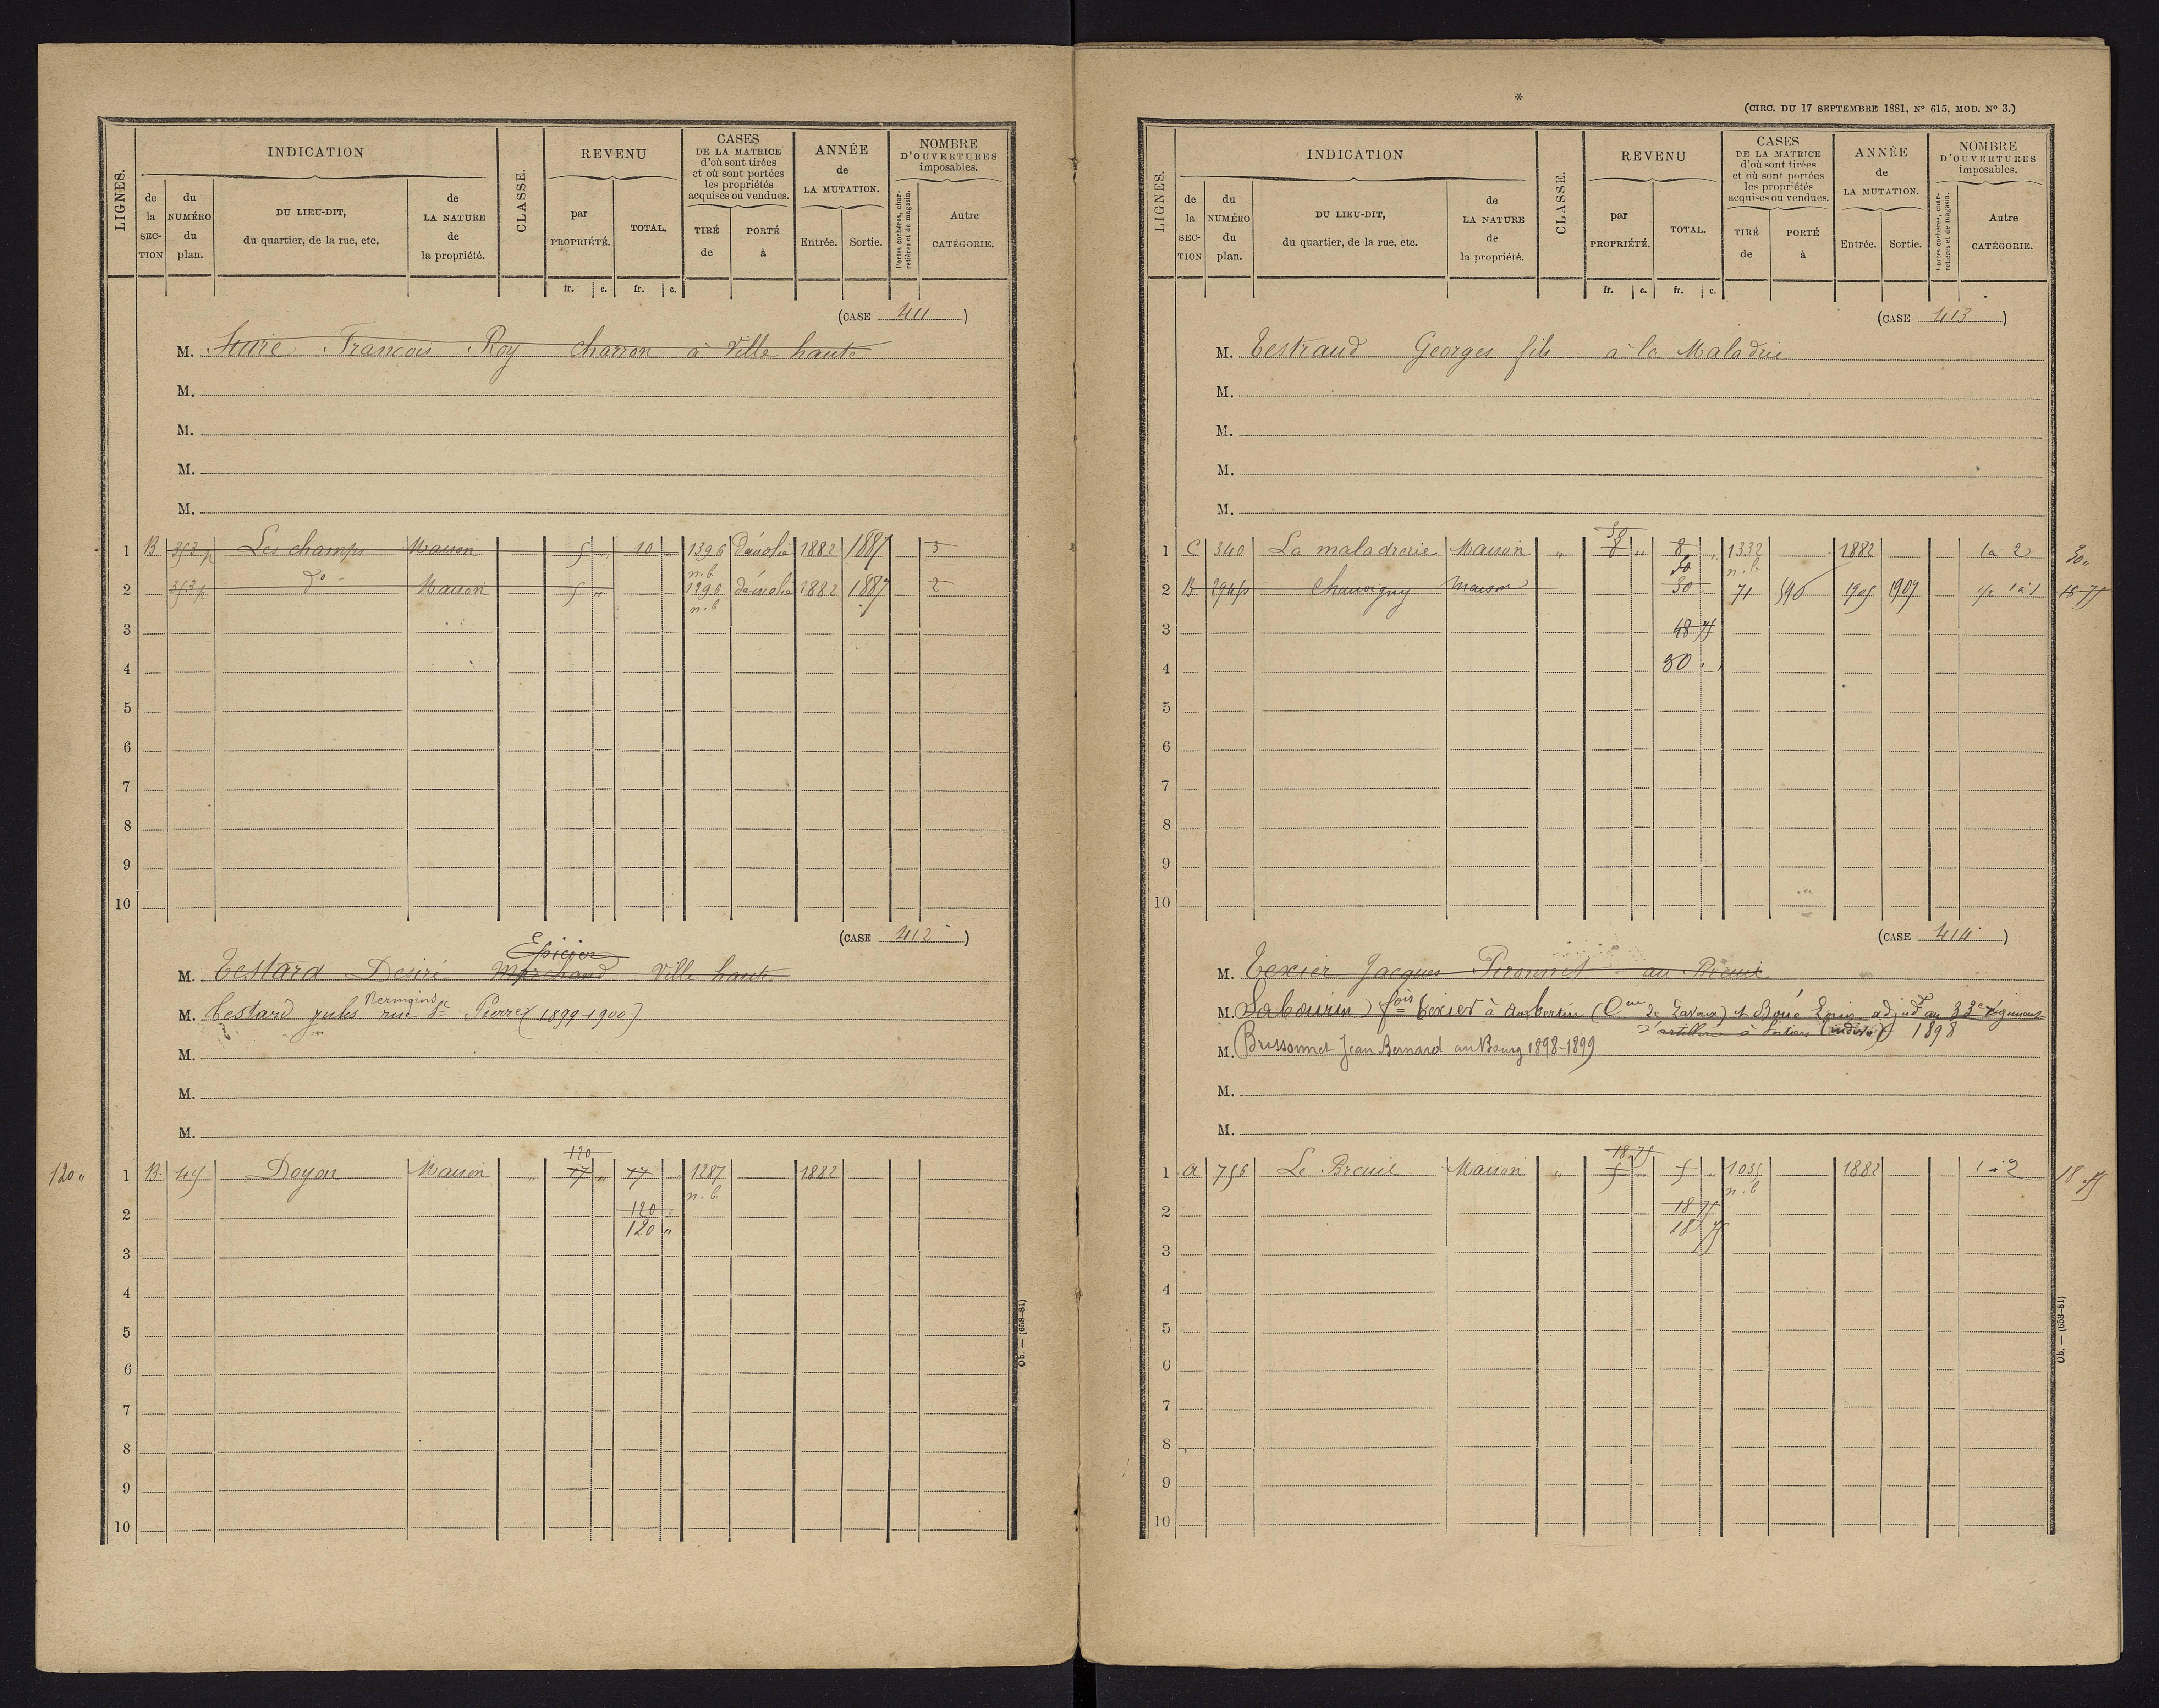 LIGNES.
INDICATION
de la SECTION
du NUMÉRO du plan.
DU LIEU-DIT, du quartier, de la rue, etc.
de LA NATURE de la propriété.
CLASSE.
REVENU
par PROPRIÉTÉ.
TOTAL.
CASES DE LA MATRICE d'où sont tirées et où sont portées les propriétés acquises ou vendues.
TIRÉ de
PORTÉ à
ANNÉE de LA MUTATION.
Entrée.
Sortie.
NOMBRE D'OUVERTURES imposables.
Portes cochères, charretières et de magasin.
Autre CATÉGORIE.
fr. c. fr. c.
(CASE 411)
M. François Roy charron à Ville haute
M.
M.
M.
M.
1 B 353 p Les champs Maison 5 " 10 1396 démolie 1882 1887 3
n.b
2 353 p do Maison 5 " 1396 démolie 1882 1887 2
n.b
3
4
5
6
7
8
9
10
(CASE 412)
Epicier
M. Testard Desiré Marchand Ville haute
M. Testard jules rue St Pierre (1899-1900)
M.
M.
M.
120
120 " 1 B 45 Doyon Maison " 17 " 17 1287 1882
n.b
2 120
120 "
3
4
5
6
7
8
9
10
Ob. — (653-81)
*
(CIRC. DU 17 SEPTEMBRE 1881, N° 615, MOD. N° 3.)
LIGNES.
INDICATION
de la SECTION
du NUMÉRO du plan.
DU LIEU-DIT, du quartier, de la rue, etc.
de LA NATURE de la propriété.
CLASSE.
REVENU
par PROPRIÉTÉ.
TOTAL.
CASES DE LA MATRICE d'où sont tirées et où sont portées les propriétés acquises ou vendues.
TIRÉ de
PORTÉ à
ANNÉE de LA MUTATION.
Entrée.
Sortie.
NOMBRE D'OUVERTURES imposables.
Portes cochères, charretières et de magasin.
Autre CATÉGORIE.
fr. c. fr. c.
(CASE 413)
M. Testraud Georges fils à la Maladrie
M.
M.
M.
M.
30
1 C 340 La maladrerie Maison " 8 " 8 " 1332 1882 1 à 2 30 "
n.b
2 B 294 p Chauvigny Maison 30 71 590 1905 1907 1/2 1 à 1 18 75
3 48 75
4 30
5
6
7
8
9
10
(CASE 414)
M. Texier Jacques Pironnet au Breuil
M. Sabourin fois Texier à Aubertin (Cne de Lavoux) et Boué Louis adjudt au 33e régiment
d'artillerie à Poitiers (indivis) 1898
M. (Brissonnet Jean Bernard au Bourg 1898-1899
M.
M.
18.75
1 A 756 Le Breuil Maison " 5 5 " 1035 1882 1 à 2 18 75
n.b
2 18 75
18 75
3
4
5
6
7
8
9
10
Ob. — (653-81)